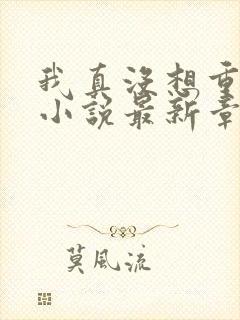 我真没想重
小说最新章
莫風流